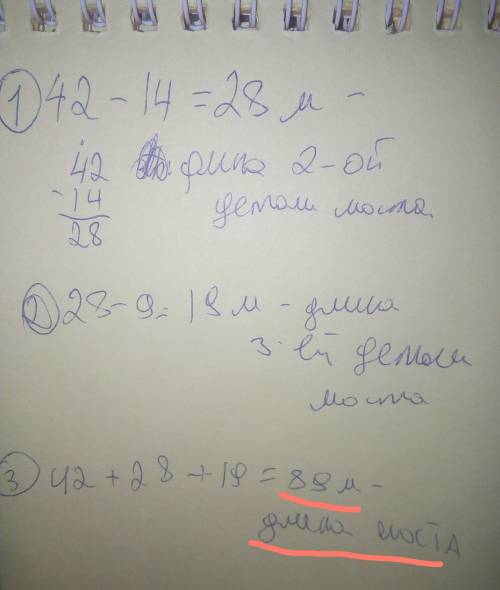 1) 42 - 14 = 28 м -
42 длина 2-ой
- 14 детали моста
28
2) 28 - 9 = 19 м - длина
3-ей детали
моста
3) 42 + 28 + 19 = 89 м -
длина моста